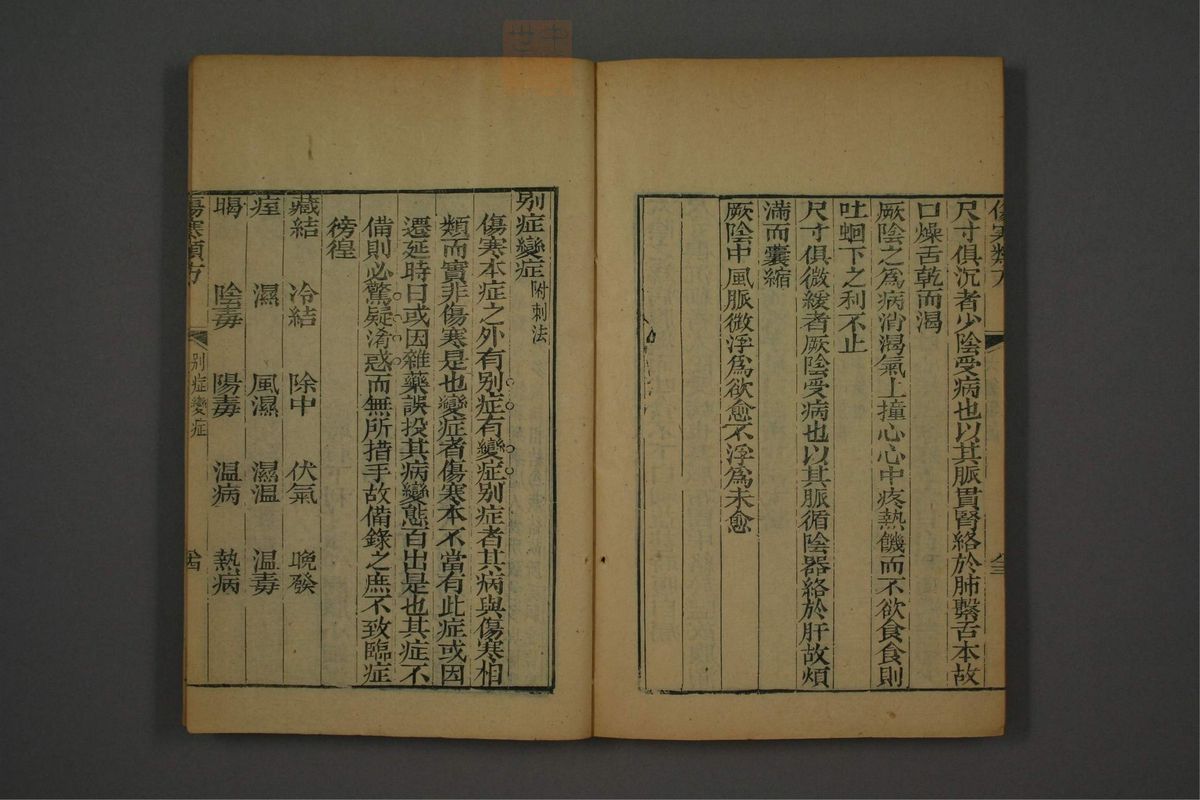 傷寒類方
尺寸俱沉者少陰受病也以其脈貫腎絡於肺繫舌本故
口燥舌乾而渴
厥陰之為病消渴氣上撞心心中疼熱饑而不欲食食則
吐蛔下之利不止
尺寸俱微緩者厥陰受病也以其脈循陰器絡於肝故煩
滿而囊縮
厥陰中風脈微浮為欲愈不浮為未愈
別症變症附刺法
傷寒本症之外有別症有變症別症者其病與傷寒相
類而實非傷寒是也變症者傷寒本不當有此症或因
遷延時日或因雜藥誤投其病變態百出是也其症不
備則必驚疑淆惑而無所措手故備錄之庶不致臨症
徬徨
藏結 冷結 除中 伏氣 晚發
痓 濕 風濕 濕温 温毒
暍 陰毒 陽毒 温病 熱病
傷寒類方 別症變症